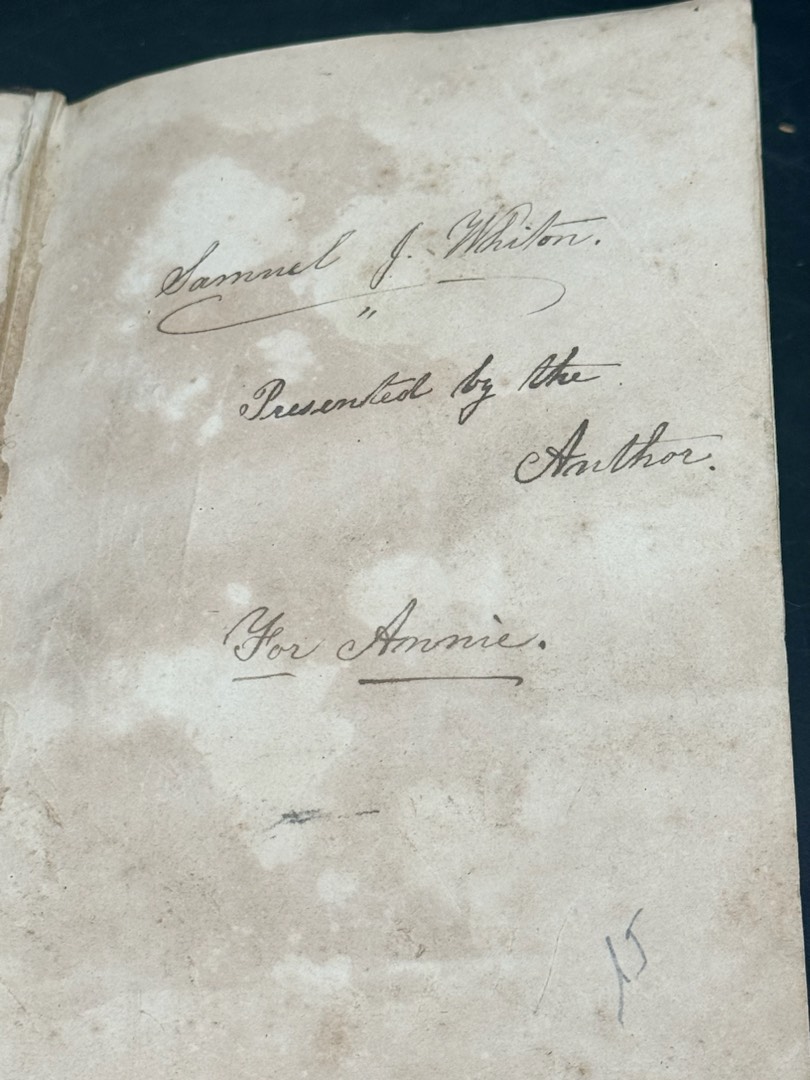 Samuel J. Whiton.
"
Presented by the
Author.
For Annie.
15